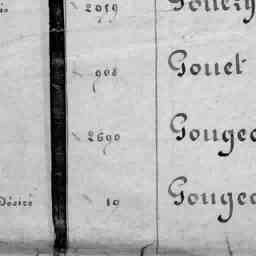 2019
908 Gouet
2690 Gouge
Désiré 10 Gouge